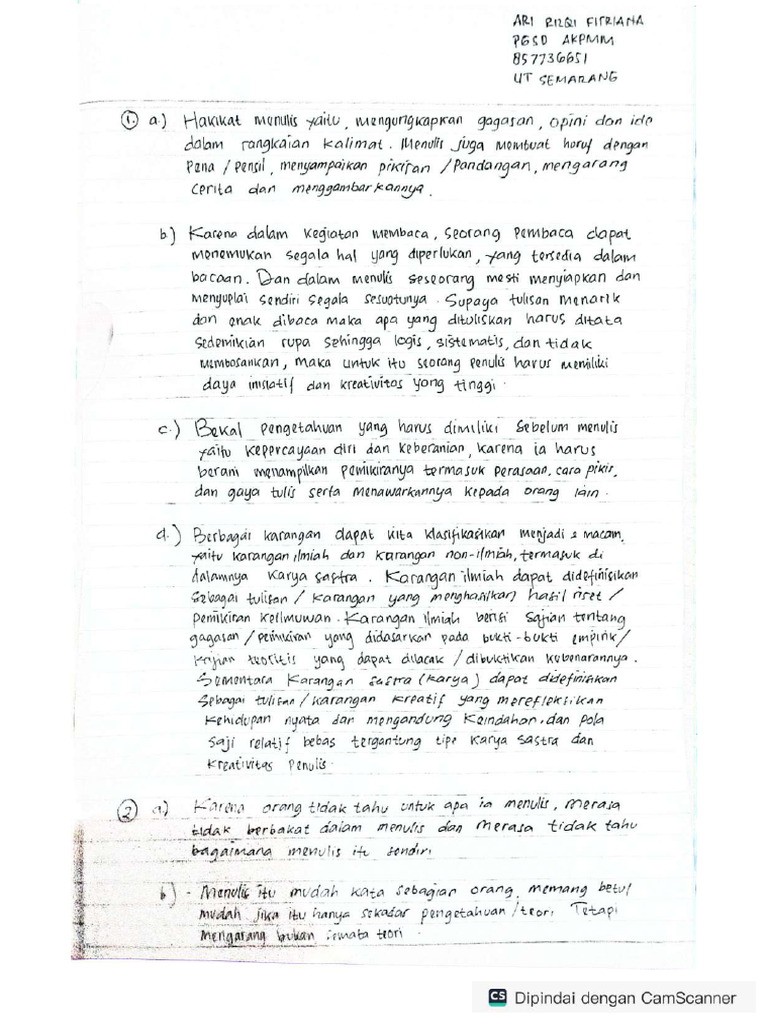 ARI RIZQI FITRIANA
PGSD AKPMM
857736651
UT SEMARANG
1. a.) Hakikat menulis yaitu, mengungkapkan gagasan, opini dan ide
dalam rangkaian kalimat. Menulis juga membuat huruf dengan
pena / pensil, menyampaikan pikiran / pandangan, mengarang
cerita dan menggambarkannya.
b) Karena dalam kegiatan membaca, seorang pembaca dapat
menemukan segala hal yang diperlukan, yang tersedia dalam
bacaan. Dan dalam menulis seseorang mesti menyiapkan dan
menyuplai sendiri segala sesuatunya. Supaya tulisan menarik
dan enak dibaca maka apa yang dituliskan harus ditata
sedemikian rupa sehingga logis, sistematis, dan tidak
membosankan, maka untuk itu seorang penulis harus memiliki
daya inisiatif dan kreativitas yang tinggi.
c.) Bekal pengetahuan yang harus dimiliki sebelum menulis
yaitu kepercayaan diri dan keberanian, karena ia harus
berani menampilkan pemikiranya termasuk perasaan, cara pikir,
dan gaya tulis serta menawarkannya kepada orang lain.
d.) Berbagai karangan dapat kita klasifikasikan menjadi 2 macam,
yaitu karangan ilmiah dan karangan non-ilmiah, termasuk di
dalamnya karya sastra. Karangan ilmiah dapat didefinisikan
sebagai tulisan / karangan yang menghasilkan hasil riset /
pemikiran keilmuwan. Karangan ilmiah berisi sajian tentang
gagasan / pemikiran yang didasarkan pada bukti-bukti empirik/
kajian teoritis yang dapat dilacak / dibuktikan kebenarannya.
Sementara karangan sastra (karya) dapat didefinisikan
sebagai tulisan / karangan kreatif yang merefleksikan
kehidupan nyata dan mengandung keindahan, dan pola
saji relatif bebas tergantung tipe karya sastra dan
kreativitas penulis.
2 a) Karena orang tidak tahu untuk apa ia menulis, merasa
tidak berbakat dalam menulis dan merasa tidak tahu
bagaimana menulis itu sendiri
b) - Menulis itu mudah kata sebagian orang, memang betul
mudah jika itu hanya sekadar pengetahuan / teori. Tetapi
mengarang bukan semata teori.
CS Dipindai dengan CamScanner